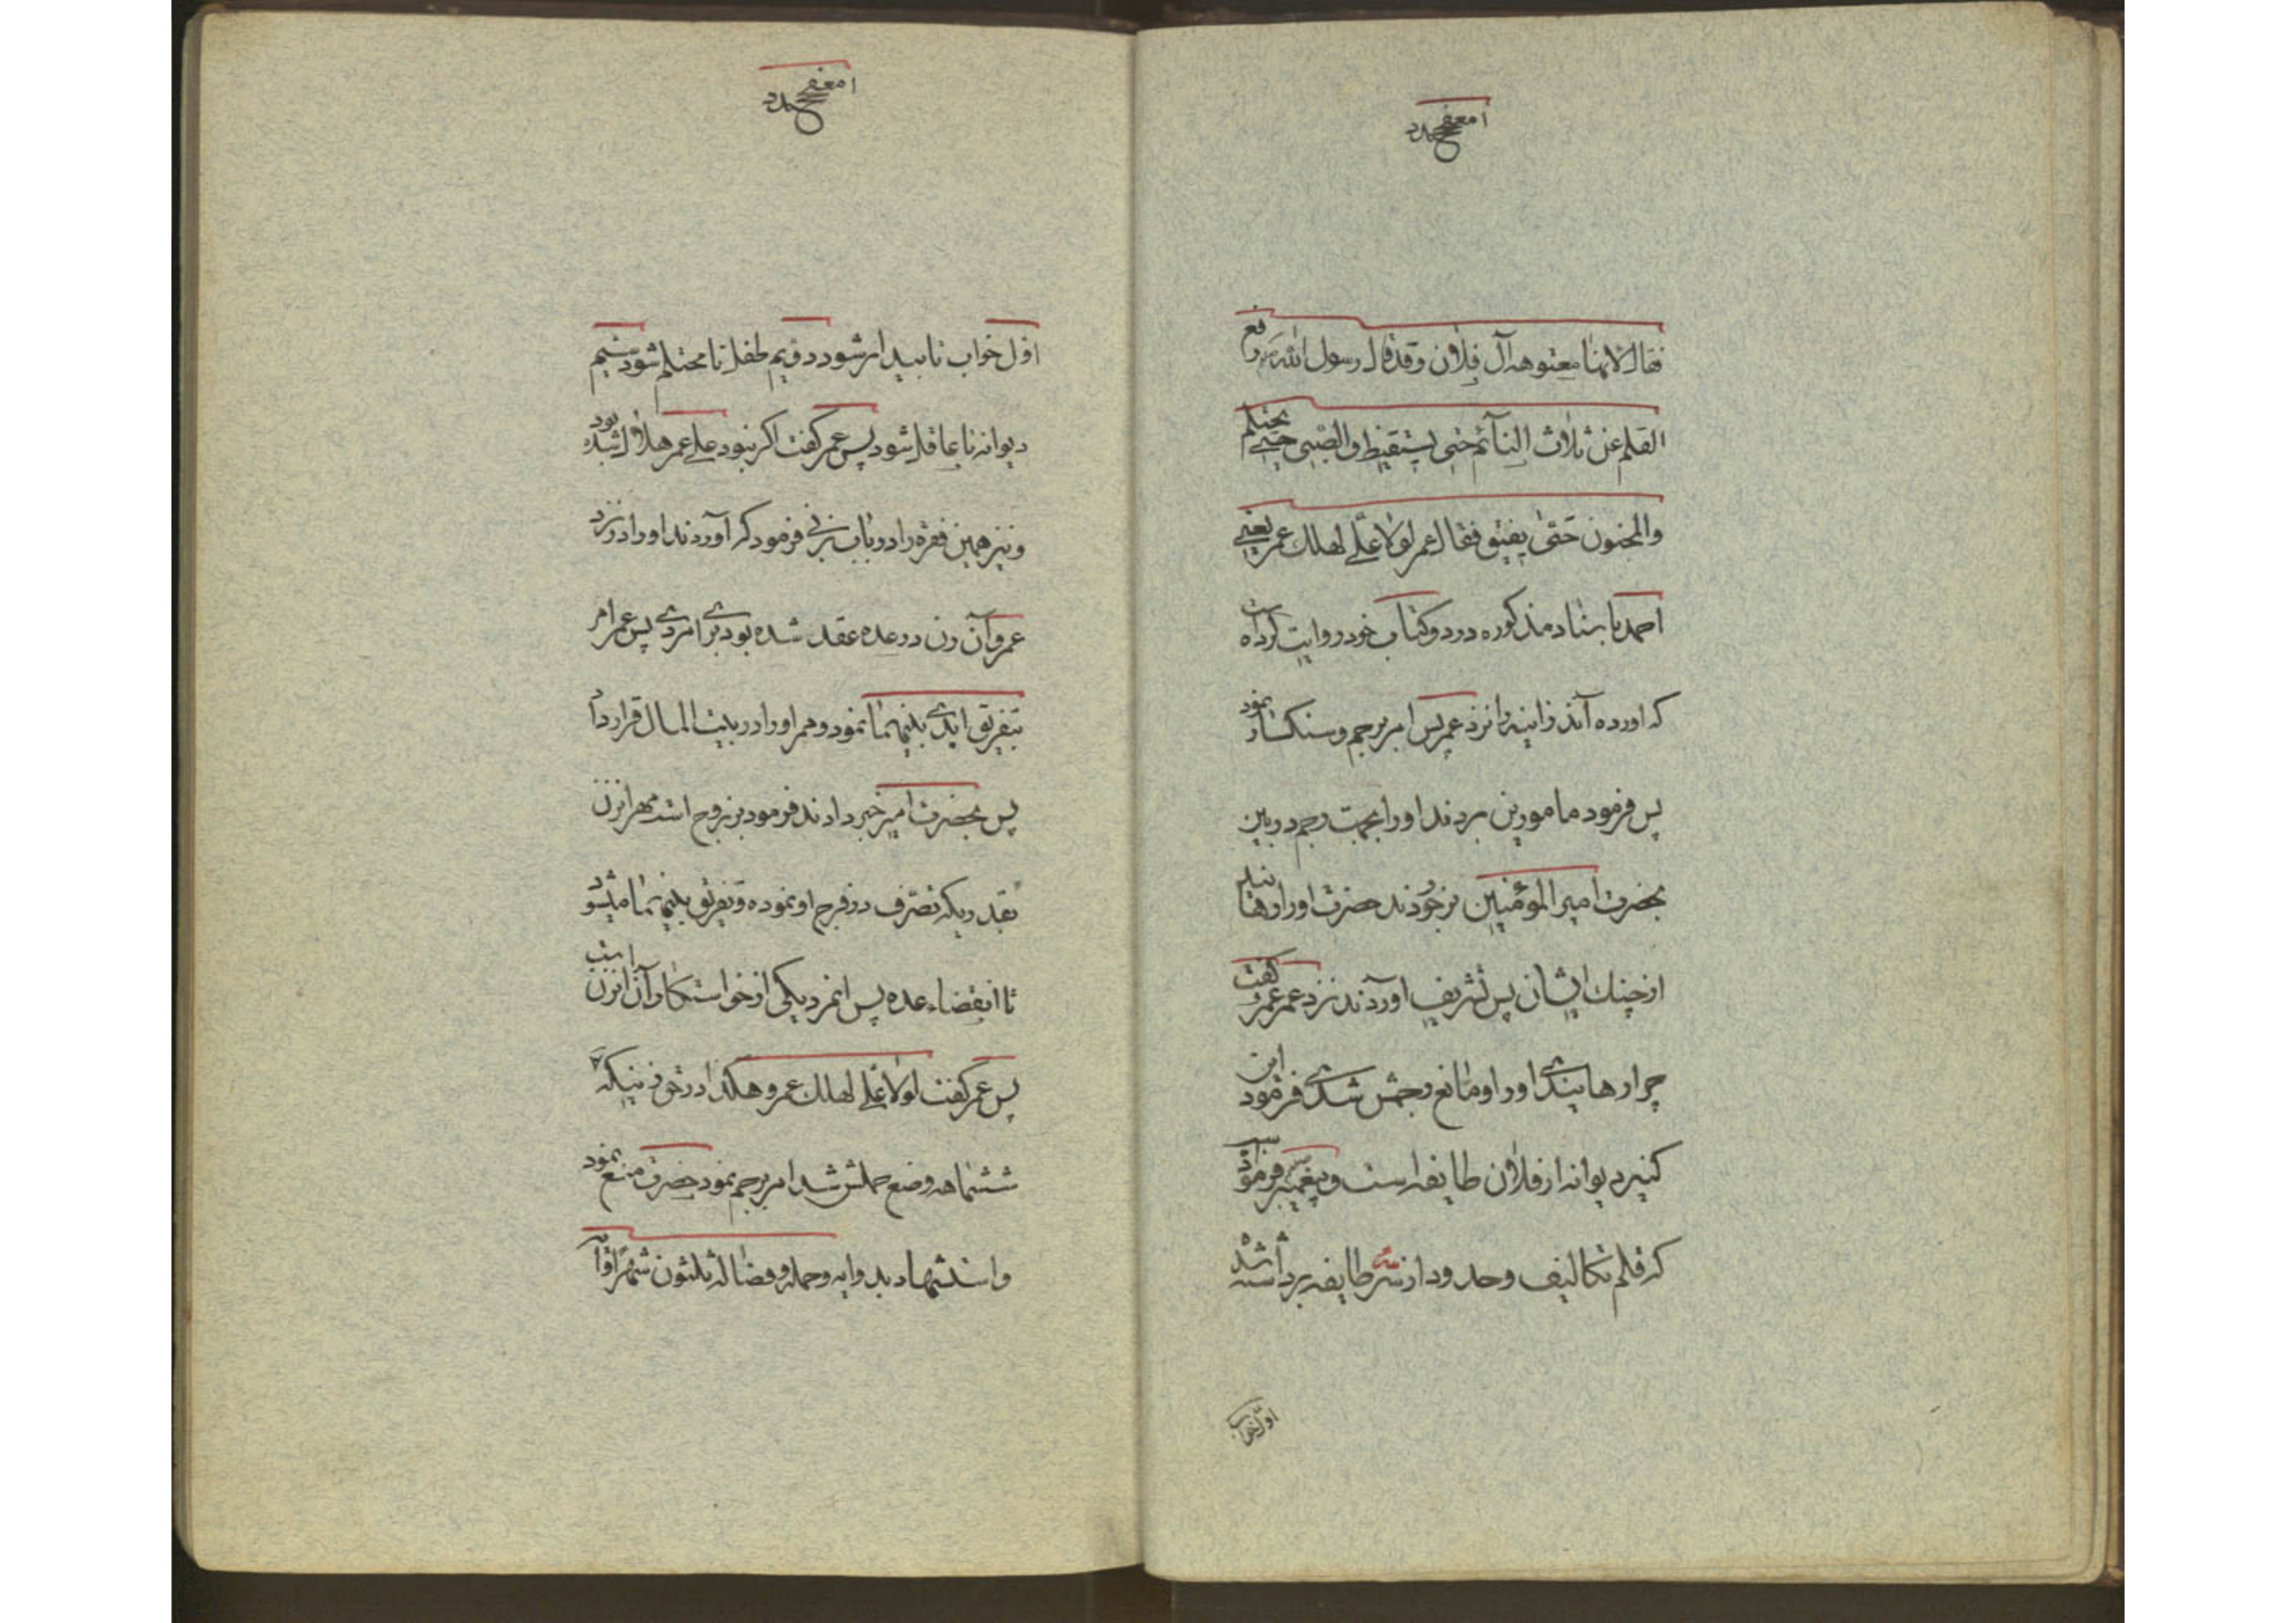 فقال لانها معتوهه آل فلان وقد قال رسول الله رفع
القلم عن ثلاث النآئم حتی یستیقظ والصبی حتی یحتلم
والمجنون حتی یفیق فقال عمر لولا علی لهلک عمر یعنی
احمد باسناد مذکوره در دو کتاب خود روایت کرده است
که اورده آند زانیه را نزد عمر پس امر برجم و سنکسار نمود
پس فرمود مامورین بردند او را بجهت رجم در بین
بحضرت امیرالمؤمنین برخوردند حضرت او را رهانید
از چنک ایشان پس تشریف اوردند نزد عمر عمر گفت
چرا رهانیدی او را و مانع رجمش شدی فرمود این
کنیز دیوانه از فلان طایفه است و پیغمبر فرمود
که قلم تکالیف وحدود از سه طایفه برداشته شده
اوّل خواب
اوّل خواب تا بیدار شود دویم طفل تا محتلم شود سیم
دیوانه تا عاقل شود پس عمر گفت اکر نبود علی عمر هلاک شده بود
و نیز همین فقره را در باب زنی فرمود که آوردند او را در نزد
عمر و آن زن در عده عقد شده بود برای مردی پس عمر امر
بتفریق ابدی بینهما نمود و مهر او را در بیت المال قرار داد
پس بحضرت امیر خبر دادند فرمود بر زوج است مهر انزن
بقدریکه تصرف در فرج او نموده و تفریق بینهما میشود
تا انقضاء عده پس انمرد یکی از خواستکاران انزن است
پس عمر گفت لولا علی لهلک عمر و هکذا در حق زنیکه
ششماهه وضع حملش شد امر برجم نمود حضرت منع نمود
و استشهاد بدو ایه وحمله وفصاله ثلثون شهرا و آیه